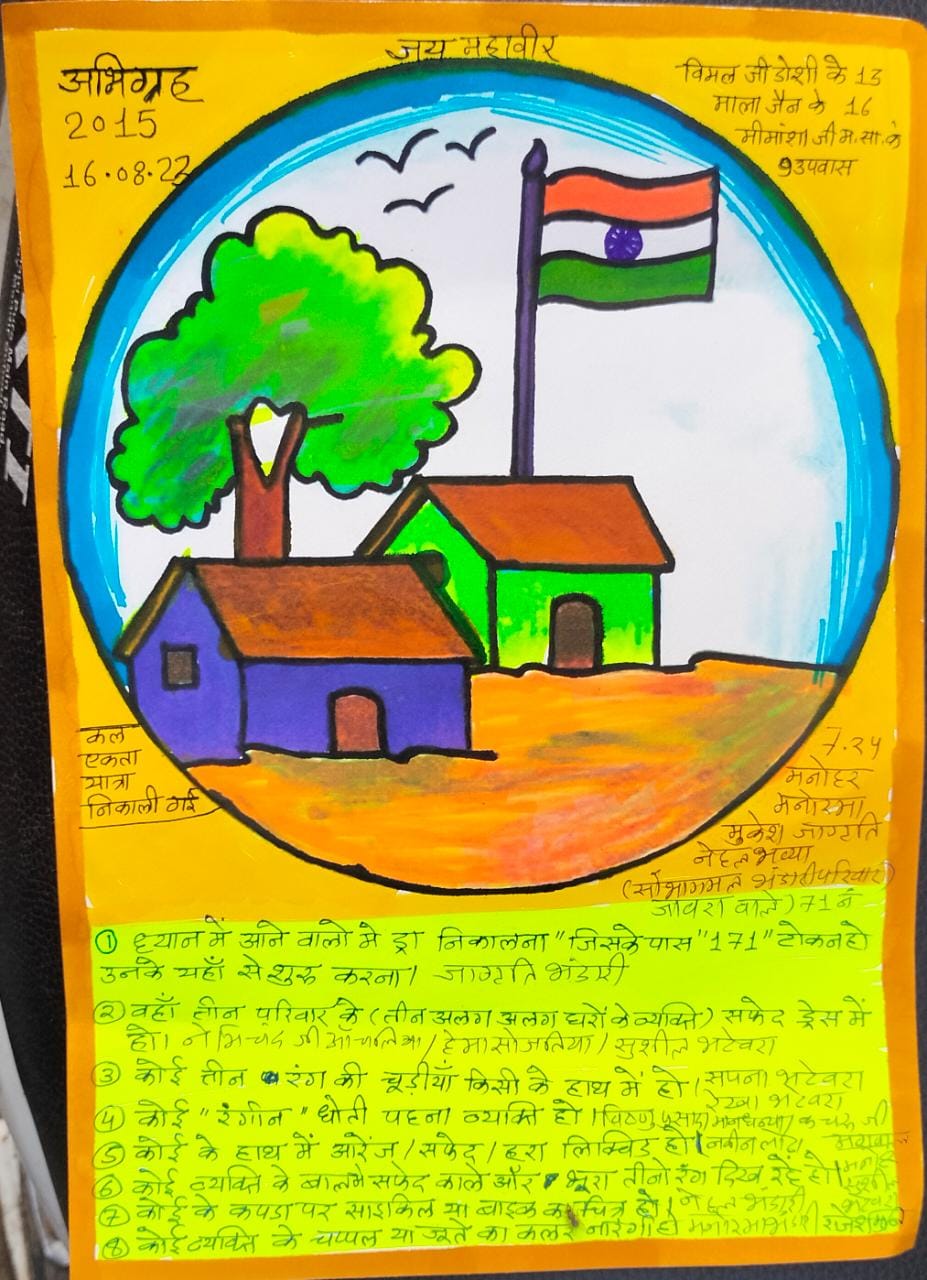 जय महावीर
अभिग्रह
2015
16.08.23
विमल जी डोशी के 13
माला जैन के 16
मीमांशा जी म.सा. के
9 उपवास
कल
एकता
यात्रा
निकाली गई
7.24
मनोहर
मनोरमा
मुकेश जागृति
नेहल भव्या
(सौभागमल भंडारी परिवार)
जावरा वाले) 71 नं
① ध्यान में आने वालो मे ड्रा निकालना "जिसके पास "171" टोकन हो
उनके यहाँ से शुरू करना। जागृति भंडारी
② वहाँ तीन परिवार के (तीन अलग अलग घरों के व्यक्ति) सफेद ड्रेस में
हो। नेमिचंद जी आँचलिया / हेमा सोजतिया / सुशील भटेवरा
③ कोई तीन रंग की चूड़ीयाँ किसी के हाथ में हो। सपना भटेवरा
रेखा भटेवरा
④ कोई "रंगीन" धोती पहना व्यक्ति हो। विष्णु प्रसाद जी
⑤ कोई के हाथ में आरेंज / सफेद / हरा लिक्विड हो।
⑥ कोई व्यक्ति के बालमे सफेद काले और भूरा तीनो रंग दिख रहे हो।
⑦ कोई के कपडा पर साइकिल या बाइक का चित्र हो। नेहल भंडारी
⑧ कोई व्यक्ति के चप्पल या जूते का कलर नारंगी हो मनोरमा भंडारी